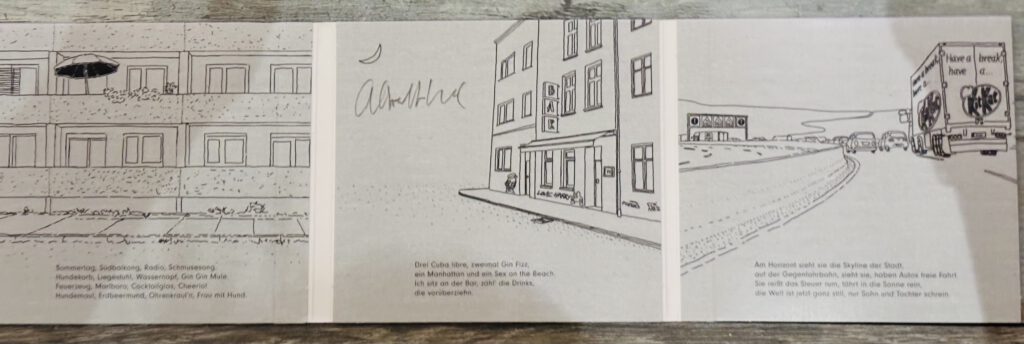 Sommertag, Südbalkong, Radio, Schmusesong.
Hundekorb, Liegestuhl, Wassernapf, Gin Gin Mule.
Feuerzeug, Marlboro, Cocktailglas, Cheerio!
Hundemaul, Erdbeermund, Ohrenkraul'n, Frau mit Hund.
BAR
Drei Cuba libre, zweimal Gin Fizz,
ein Manhattan und ein Sex on the Beach.
Ich sitz an der Bar, zähl' die Drinks,
die vorüberziehn.
Have a break,
have a...
KitKat
Am Horizont sieht sie die Skyline der Stadt,
auf der Gegenfahrbahn, sieht sie, haben Autos freie Fahrt.
Sie reißt das Steuer rum, fährt in die Sonne rein,
die Welt ist jetzt ganz still, nur Sohn und Tochter schrein.